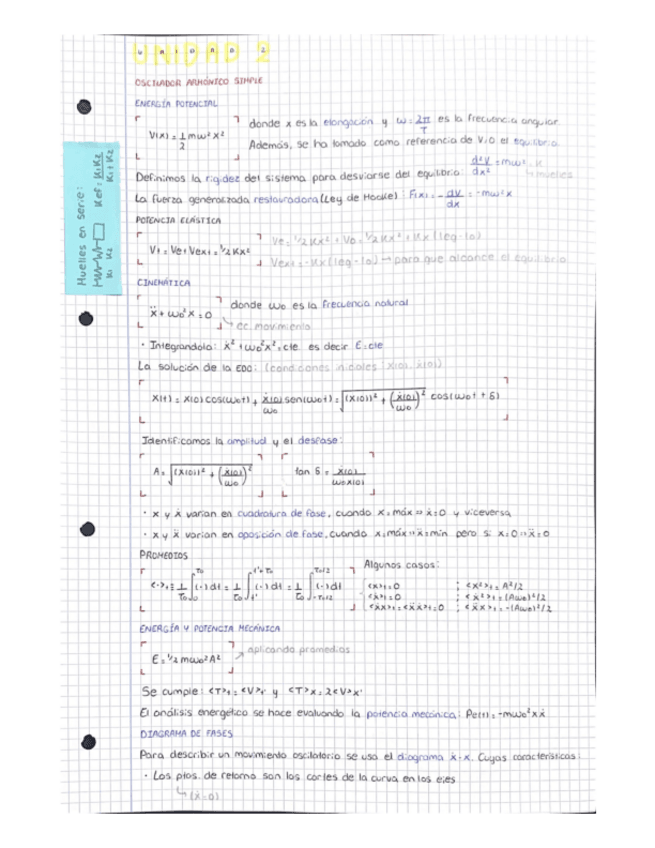 UNIDAD 2
OSCILADOR ARMÓNICO SIMPLE
ENERGÍA POTENCIAL
V(x) = 1/2 mω²x² donde x es la elongación y ω = 2π/T es la frecuencia angular.
Además, se ha tomado como referencia de V=0 el equilibrio.
Definimos la rigidez del sistema para desviarse del equilibrio: d²V/dx² = mω² = K
↳ muelles
La fuerza generalizada restauradora (Ley de Hooke): F(x) = - dV/dx = -mω²x
Muelles en serie: Kef = K1K2/K1+K2
K1 K2
POTENCIA ELÁSTICA
Vt = Ve + Vext = 1/2 Kx² Ve = 1/2 Kx² + Vo = 1/2 Kx² + Kx(leq-lo)
Vext = -Kx(leq-lo) → para que alcance el equilibrio
CINEMÁTICA
ẍ + ωo²x = 0 donde ωo es la frecuencia natural
↳ ec. movimiento
· Integrandola: ẋ² + ωo²x² = cte es decir E = cte
La solución de la EDO: (condiciones iniciales: x(0), ẋ(0))
x(t) = x(0) cos(ωot) + ẋ(0)/ωo sen(ωot) = √((x(0))² + (ẋ(0)/ωo)²) cos(ωot + δ)
Identificamos la amplitud y el desfase:
A = √((x(0))² + (ẋ(0)/ωo)²) tan δ = ẋ(0)/ωox(0)
· x y ẋ varían en cuadratura de fase, cuando x=máx => ẋ=0 y viceversa
· x y ẍ varían en oposición de fase, cuando x=máx => ẍ=min pero si x=0 => ẍ=0
PROMEDIOS
Algunos casos:
<·>t = 1/τo ∫0^τo (·)dt = 1/τo ∫t'^t'+τo (·)dt = 1/τo ∫-τo/2^τo/2 (·)dt
<x>t = 0 ; <x²>t = A²/2
<ẋ>t = 0 ; <ẋ²>t = (Aωo)²/2
<ẋx>t = <ẋẍ>t = 0 ; <ẍx>t = -(Aωo)²/2
ENERGÍA Y POTENCIA MECÁNICA
E = 1/2 mωo²A² ↗ aplicando promedios
Se cumple: <T>t = <V>t y <T>x = 2<V>x
El análisis energético se hace evaluando la potencia mecánica: Pe(t) = -mωo²xẋ
DIAGRAMA DE FASES
Para describir un movimiento oscilatorio se usa el diagrama ẋ-x. Cuyas características:
· Los ptos. de retorno son los cortes de la curva en los ejes
↳ (ẋ=0)